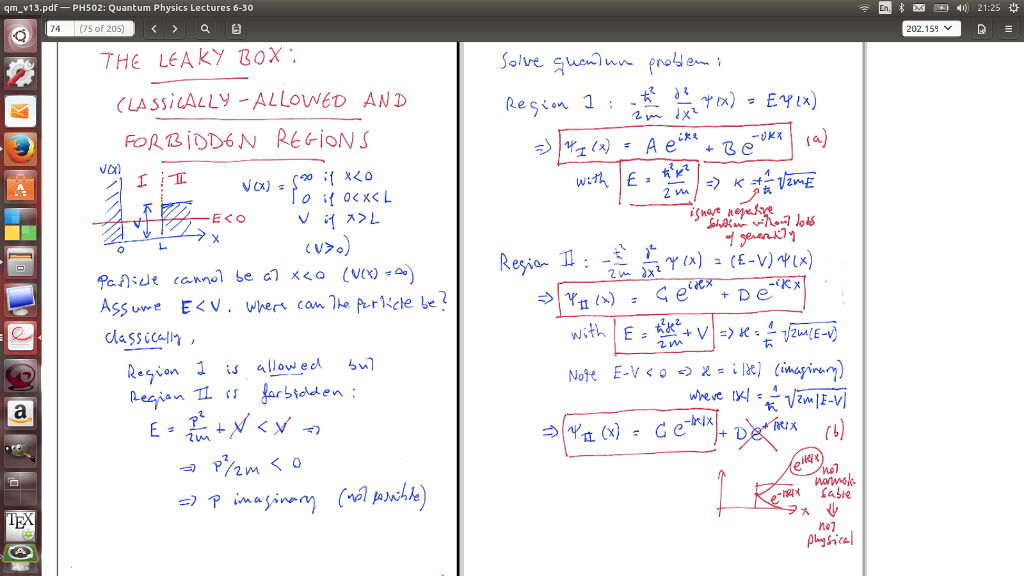 qm_v13.pdf — PH502: Quantum Physics Lectures 6-30
En
21:25
74 (75 of 205)
202.15%
THE LEAKY BOX:
CLASSICALLY-ALLOWED AND
FORBIDDEN REGIONS
V(x) I II
V
E<0
0 L x
V(x) = { ∞ if x<0
0 if 0<x<L
V if x>L
(V>0)
Particle cannot be at x<0 (V(x)=∞)
Assume E<V. Where can the particle be?
Classically,
Region I is allowed but
Region II is forbidden:
E = p²/2m + V < V ⇒
⇒ p²/2m < 0
⇒ p imaginary (not possible)
Solve quantum problem:
Region I : -ħ²/2m ∂²/∂x² Ψ(x) = EΨ(x)
⇒ Ψ_I(x) = A e^{iκx} + B e^{-iκx} (a)
with E = ħ²κ²/2m ⇒ κ = +1/ħ √2mE
ignore negative
solution without loss
of generality
Region II : -ħ²/2m ∂²/∂x² Ψ(x) = (E-V) Ψ(x)
⇒ Ψ_II(x) = C e^{iϰx} + D e^{-iϰx}
with E = ħ²ϰ²/2m + V ⇒ ϰ = 1/ħ √2m(E-V)
Note E-V<0 ⇒ ϰ = i|ϰ| (imaginary)
where |ϰ| = 1/ħ √2m|E-V|
⇒ Ψ_II(x) = C e^{-|ϰ|x} + D e^{+|ϰ|x} (b)
e^{|ϰ|x} not
normali-
sable
e^{-|ϰ|x} x ⇓
not
physical
a
TEX